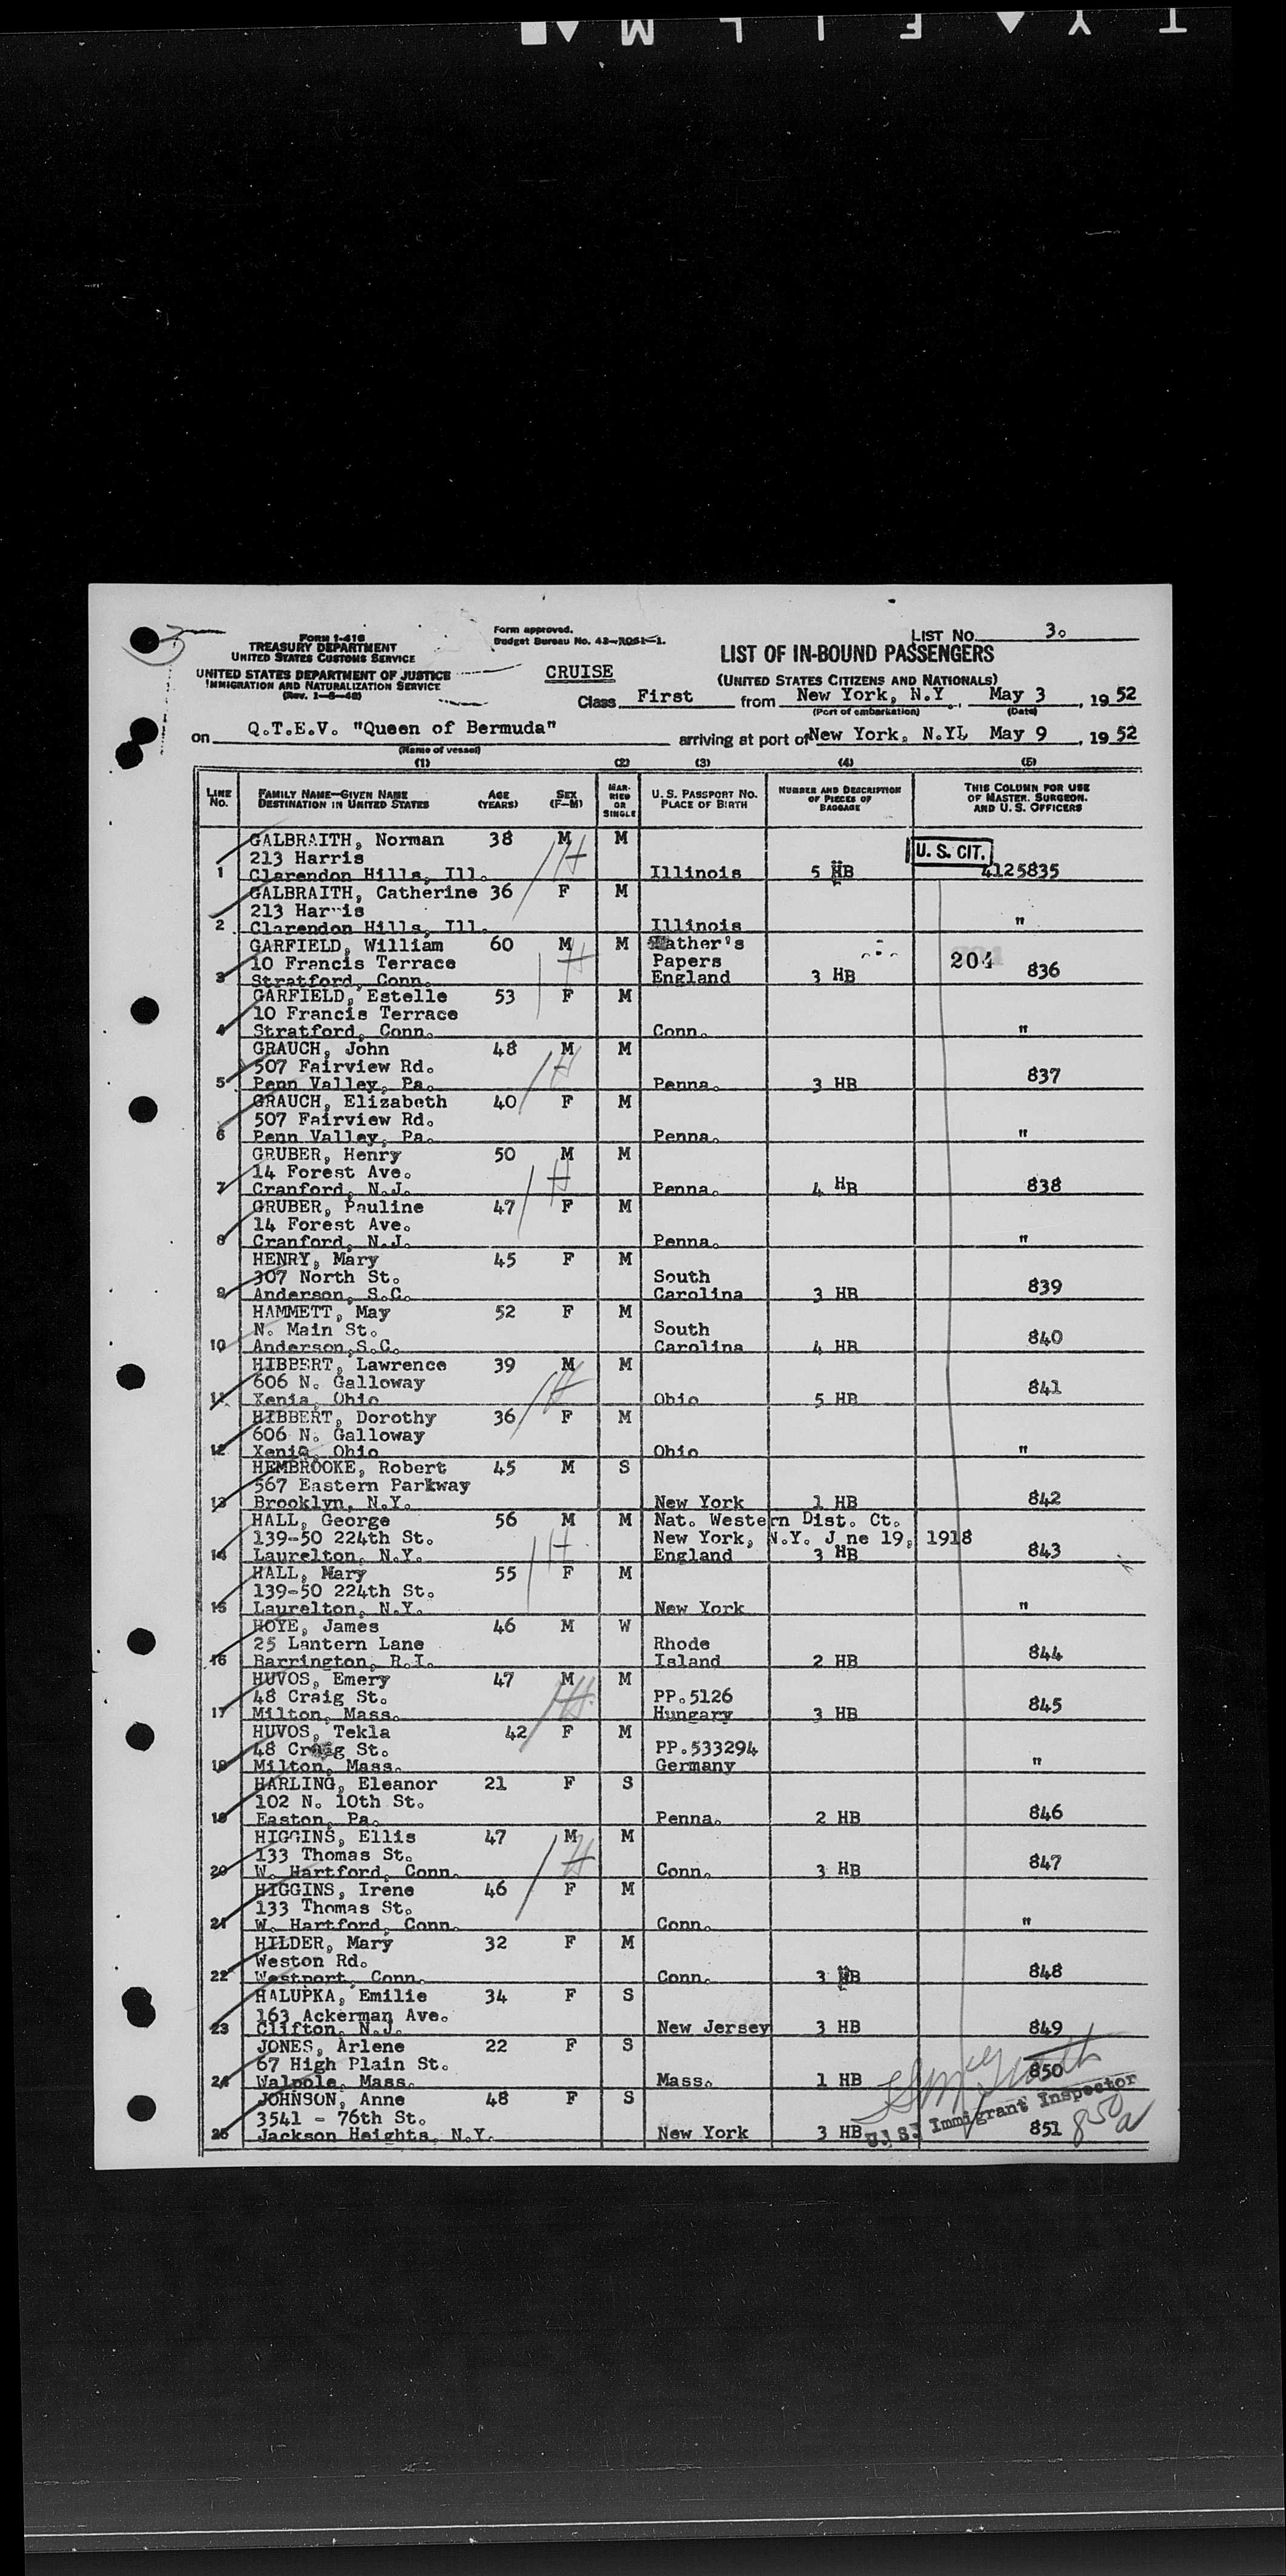 FORM I-416
TREASURY DEPARTMENT
UNITED STATES CUSTOMS SERVICE
UNITED STATES DEPARTMENT OF JUSTICE
IMMIGRATION AND NATURALIZATION SERVICE
Form approved.
Budget Bureau No. 43-R051-1.
LIST NO. 3.
LIST OF IN-BOUND PASSENGERS
(UNITED STATES CITIZENS AND NATIONALS)
CRUISE
Class First from New York, N.Y., May 3, 1952
(Port of embarkation) (Date)
on Q.T.E.V. "Queen of Bermuda" arriving at port of New York, N.Y. May 9, 1952
(Name of vessel)
(1) (2) (3) (4) (5)
LINE NO. FAMILY NAME—GIVEN NAME DESTINATION IN UNITED STATES AGE (YEARS) SEX (F-M) MARRIED OR SINGLE U. S. PASSPORT NO. PLACE OF BIRTH NUMBER AND DESCRIPTION OF PIECES OF BAGGAGE THIS COLUMN FOR USE OF MASTER, SURGEON, AND U. S. OFFICERS
GALBRAITH, Norman 38 M M
213 Harris U. S. CIT.
1 Clarendon Hills, Ill. Illinois 5 HB 4125835
GALBRAITH, Catherine 36 F M
213 Harris
2 Clarendon Hills, Ill. Illinois "
GARFIELD, William 60 M M Father's
10 Francis Terrace Papers 204
3 Stratford, Conn. England 3 HB 836
GARFIELD, Estelle 53 F M
10 Francis Terrace
4 Stratford, Conn. Conn. "
GRAUCH, John 48 M M
507 Fairview Rd.
5 Penn Valley, Pa. Penna. 3 HB 837
GRAUCH, Elizabeth 40 F M
507 Fairview Rd.
6 Penn Valley, Pa. Penna. "
GRUBER, Henry 50 M M
14 Forest Ave.
7 Cranford, N.J. Penna. 4 HB 838
GRUBER, Pauline 47 F M
14 Forest Ave.
8 Cranford, N.J. Penna. "
HENRY, Mary 45 F M
307 North St. South
9 Anderson, S.C. Carolina 3 HB 839
HAMMETT, May 52 F M
N. Main St. South
10 Anderson,S.C. Carolina 4 HB 840
HIBBERT, Lawrence 39 M M
606 N. Galloway
11 Xenia, Ohio Ohio 5 HB 841
HIBBERT, Dorothy 36 F M
606 N. Galloway
12 Xenia, Ohio Ohio "
HEMBROOKE, Robert 45 M S
567 Eastern Parkway
13 Brooklyn, N.Y. New York 1 HB 842
HALL, George 56 M M Nat. Western Dist. Ct.
139-50 224th St. New York, N.Y. J ne 19, 1918
14 Laurelton, N.Y. England 3 HB 843
HALL, Mary 55 F M
139-50 224th St.
15 Laurelton, N.Y. New York "
HOYE, James 46 M W
25 Lantern Lane Rhode
16 Barrington, R.I. Island 2 HB 844
HUVOS, Emery 47 M M
48 Craig St. PP.5126
17 Milton, Mass. Hungary 3 HB 845
HUVOS, Tekla 42 F M
48 Craig St. PP.533294
18 Milton, Mass. Germany "
HARLING, Eleanor 21 F S
102 N. 10th St.
19 Easton, Pa. Penna. 2 HB 846
HIGGINS, Ellis 47 M M
133 Thomas St.
20 W. Hartford, Conn. Conn. 3 HB 847
HIGGINS, Irene 46 F M
133 Thomas St.
21 W. Hartford, Conn. Conn. "
HILDER, Mary 32 F M
Weston Rd.
22 Westport, Conn. Conn. 3 HB 848
HALUPKA, Emilie 34 F S
163 Ackerman Ave.
23 Clifton, N.J. New Jersey 3 HB 849
JONES, Arlene 22 F S
67 High Plain St.
24 Walpole, Mass. Mass. 1 HB 850
JOHNSON, Anne 48 F S
3541 - 76th St.
25 Jackson Heights, N.Y. New York 3 HB 851
U. S. Immigrant Inspector
850a